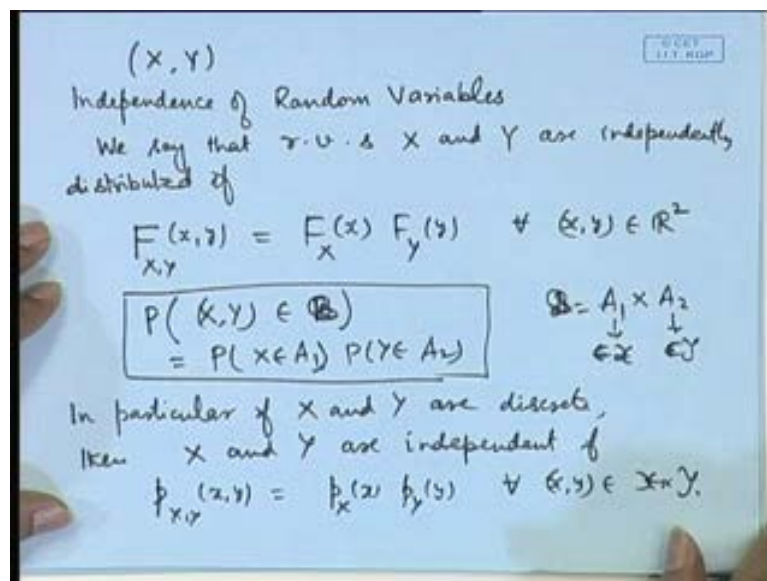 (X, Y)
© CET
I.I.T. KGP
Independence of Random Variables
We say that r.v.s X and Y are independently
distributed if
F_{X,Y}(x,y) = F_X(x) F_Y(y) ∀ (x,y) ∈ ℝ²
P( (X,Y) ∈ B) B = A₁ × A₂
= P(X ∈ A₁) P(Y ∈ A₂) ↓ ↓
∈𝒳 ∈𝒴
In particular if X and Y are discrete,
then X and Y are independent if
p_{X,Y}(x,y) = p_X(x) p_Y(y) ∀ (x,y) ∈ 𝒳 × 𝒴.